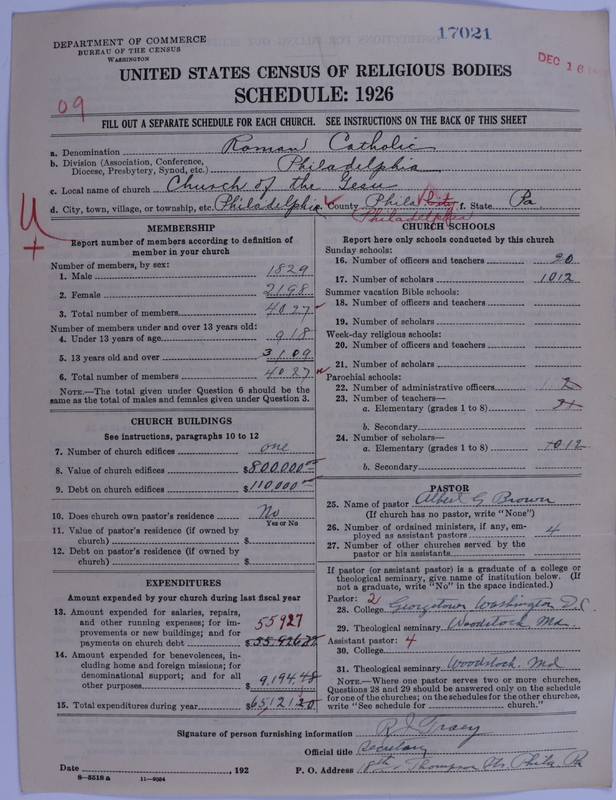 17021
DEC 16
DEPARTMENT OF COMMERCE
BUREAU OF THE CENSUS
WASHINGTON
UNITED STATES CENSUS OF RELIGIOUS BODIES
SCHEDULE: 1926
09
FILL OUT A SEPARATE SCHEDULE FOR EACH CHURCH. SEE INSTRUCTIONS ON THE BACK OF THIS SHEET
a. Denomination Roman Catholic
b. Division (Association, Conference, Diocese, Presbytery, Synod, etc.) Philadelphia
c. Local name of church Church of the Gesu
d. City, town, village, or township, etc. Philadelphia County Phila f. State Pa
Philadelphia
MEMBERSHIP
Report number of members according to definition of
member in your church
Number of members, by sex:
1. Male 1829
2. Female 2198
3. Total number of members 4027
Number of members under and over 13 years old:
4. Under 13 years of age 918
5. 13 years old and over 3109
6. Total number of members 4027
NOTE.—The total given under Question 6 should be the
same as the total of males and females given under Question 3.
CHURCH BUILDINGS
See instructions, paragraphs 10 to 12
7. Number of church edifices one
8. Value of church edifices $800,000.00
9. Debt on church edifices $110,000.00
10. Does church own pastor's residence No
Yes or No
11. Value of pastor's residence (if owned by
church) $
12. Debt on pastor's residence (if owned by
church) $
EXPENDITURES
Amount expended by your church during last fiscal year
13. Amount expended for salaries, repairs,
and other running expenses; for im-
provements or new buildings; and for
payments on church debt 55927
$
14. Amount expended for benevolences, in-
cluding home and foreign missions; for
denominational support; and for all
other purposes $9,194.48
15. Total expenditures during year $65,121.20
CHURCH SCHOOLS
Report here only schools conducted by this church
Sunday schools:
16. Number of officers and teachers 20
17. Number of scholars 1012
Summer vacation Bible schools:
18. Number of officers and teachers
19. Number of scholars
Week-day religious schools:
20. Number of officers and teachers
21. Number of scholars
Parochial schools:
22. Number of administrative officers
23. Number of teachers—
a. Elementary (grades 1 to 8)
b. Secondary
24. Number of scholars—
a. Elementary (grades 1 to 8) 1012
b. Secondary
PASTOR
25. Name of pastor Albert G Brown
(If church has no pastor, write "None")
26. Number of ordained ministers, if any, em-
ployed as assistant pastors 4
27. Number of other churches served by the
pastor or his assistants
If pastor (or assistant pastor) is a graduate of a college or
theological seminary, give name of institution below. (If
not a graduate, write "No" in the space indicated.)
Pastor: 2
28. College Georgetown Washington D.C.
29. Theological seminary Woodstock Md
Assistant pastor: 4
30. College
31. Theological seminary Woodstock Md
NOTE.—Where one pastor serves two or more churches,
Questions 28 and 29 should be answered only on the schedule
for one of the churches; on the schedules for the other churches,
write "See schedule for church."
Signature of person furnishing information R J Tracy
Official title Secretary
Date , 192 P. O. Address 18th Thompson Sts Phila Pa
8—5518 a 11—9054